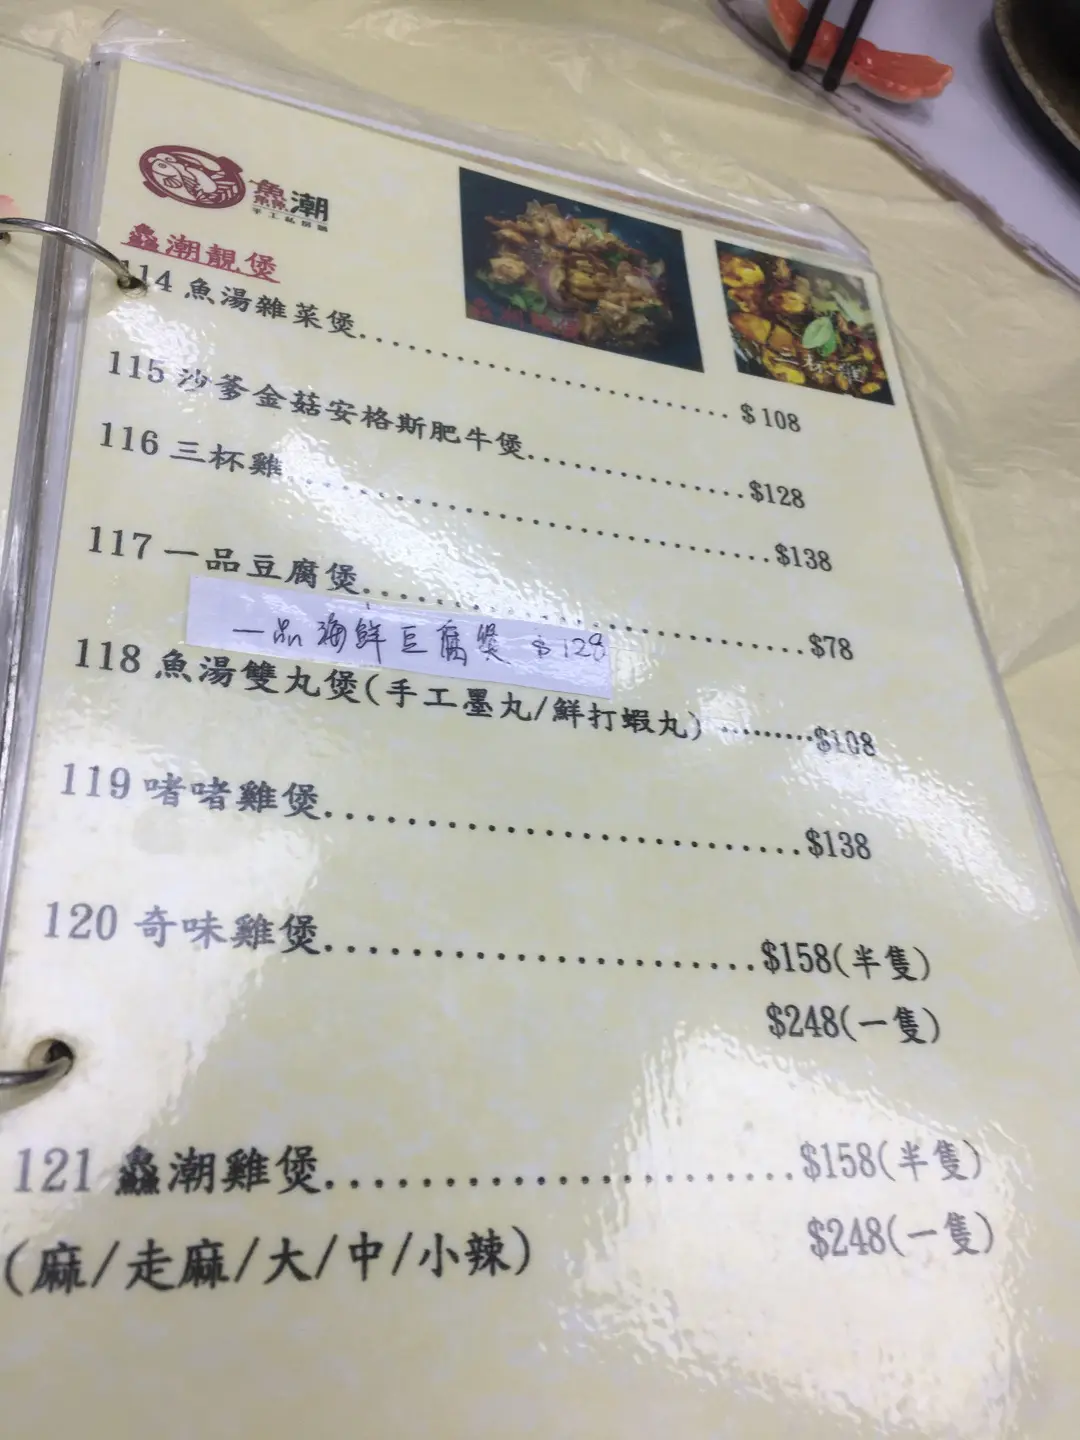 鱻潮
手工私房鍋
鱻潮靚煲
114 魚湯雜菜煲 $108
115 沙爹金菇安格斯肥牛煲 $128
116 三杯雞 $138
117 一品豆腐煲 $78
一品海鮮豆腐煲 $128
118 魚湯雙丸煲(手工墨丸/鮮打蝦丸) $108
119 啫啫雞煲 $138
120 奇味雞煲 $158(半隻)
$248(一隻)
121 鱻潮雞煲 $158(半隻)
$248(一隻)
(麻/走麻/大/中/小辣)
三杯雞